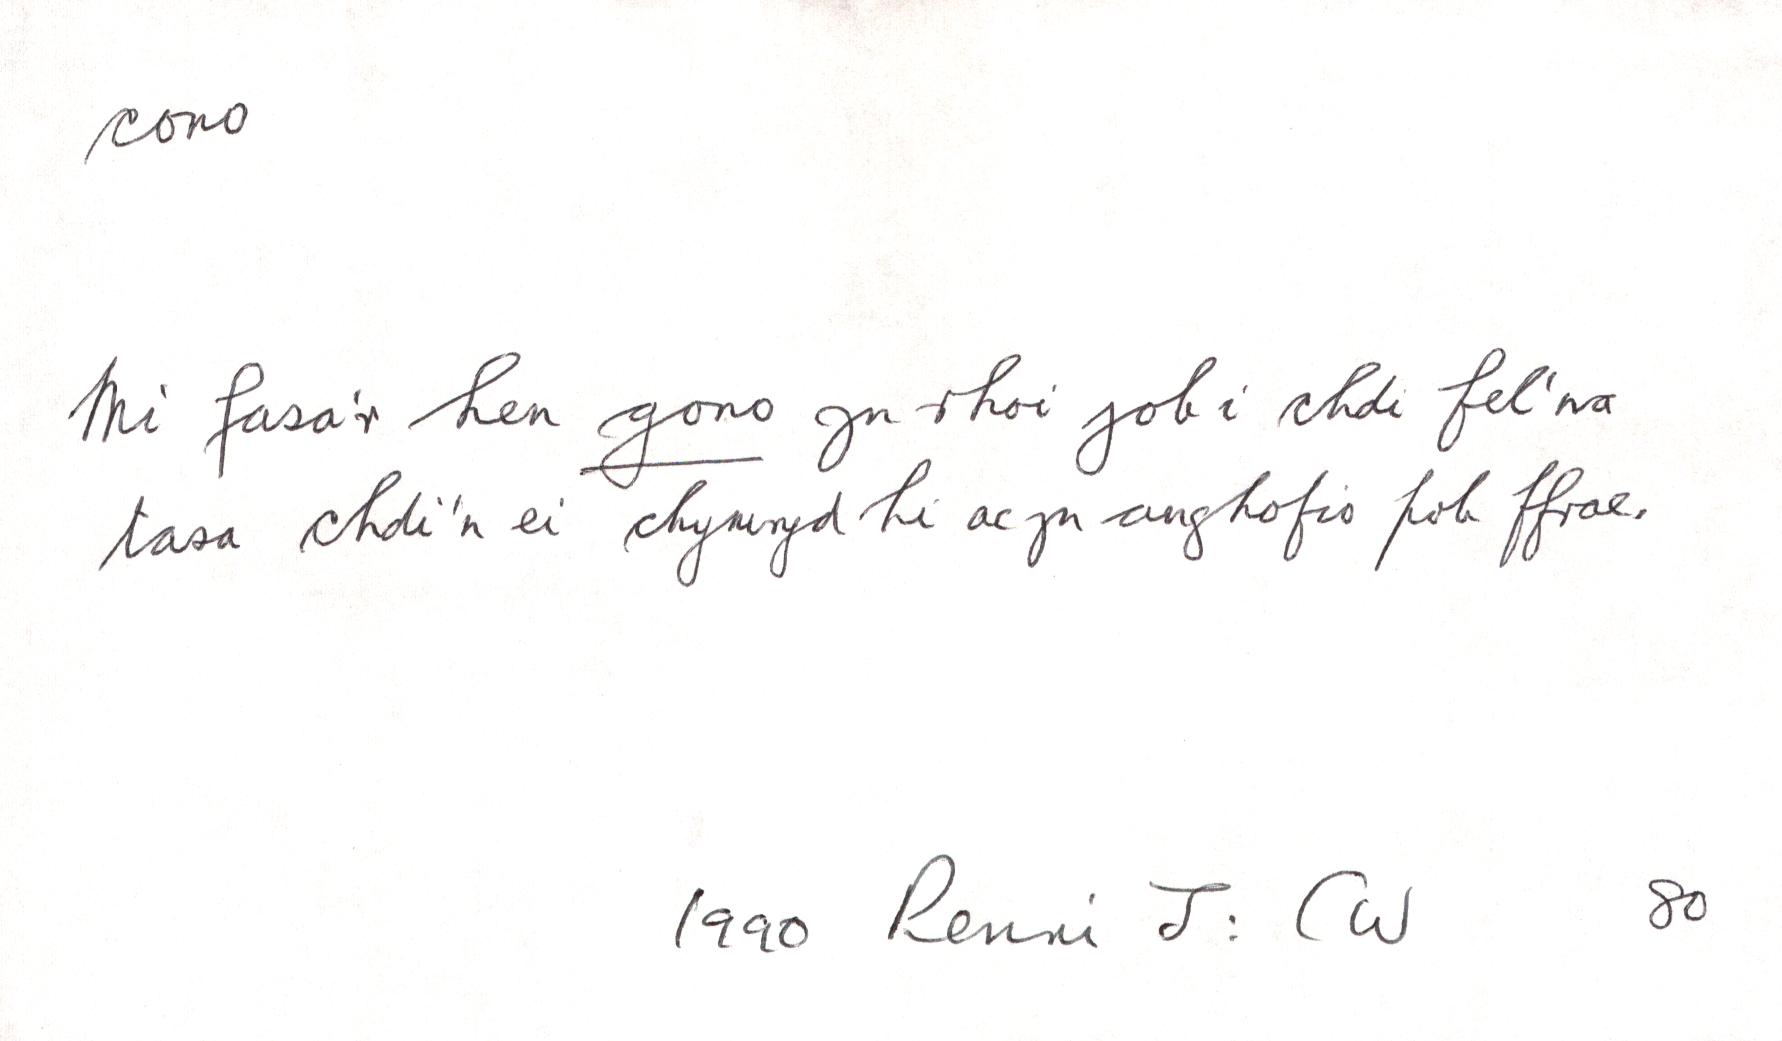 cono
Mi fasa'r hen gono yn rhoi job i chdi fel'na
tasa chdi'n ei chymryd hi ac yn anghofio pob ffrae.
1990 Renni J: CW 80